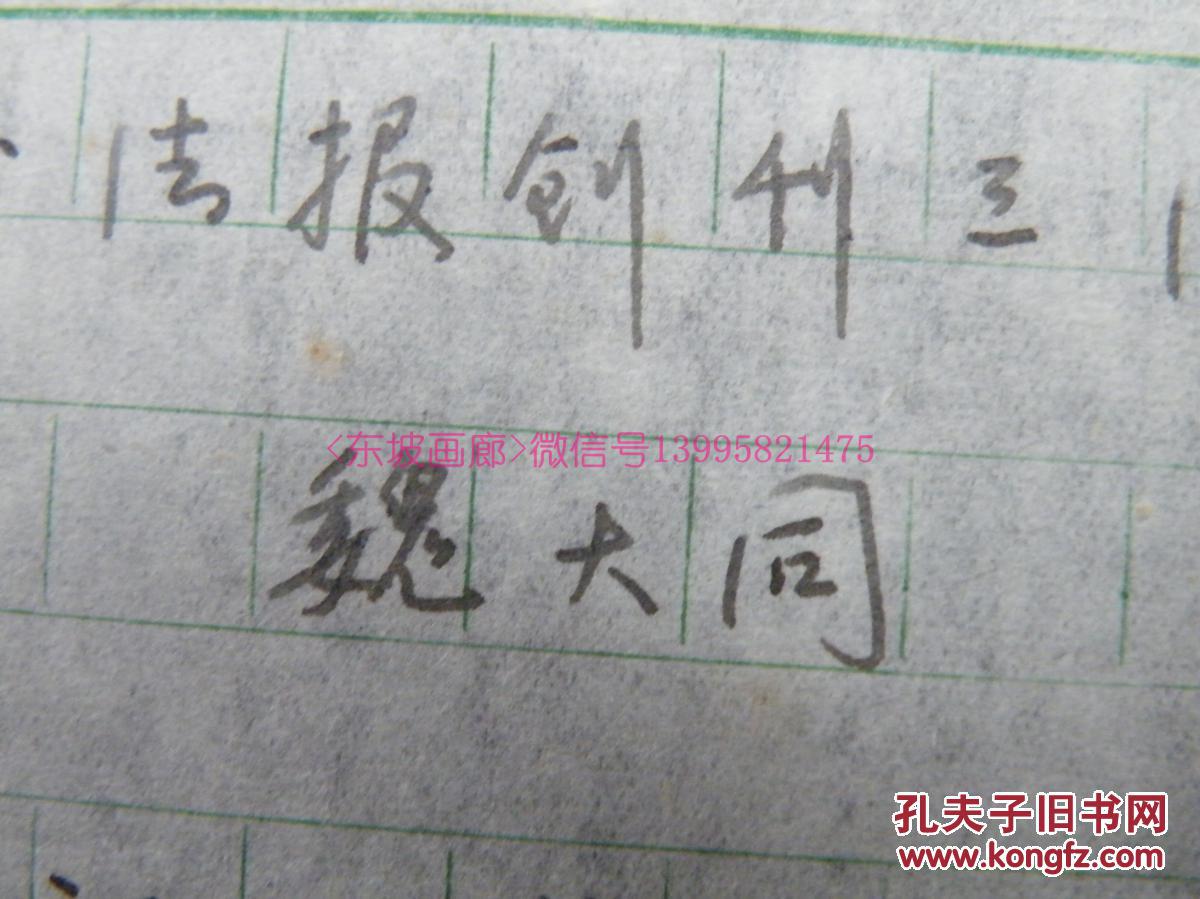 法报创刊三
<东坡画廊>微信号13995821475
魏大同
孔夫子旧书网
www.kongfz.com